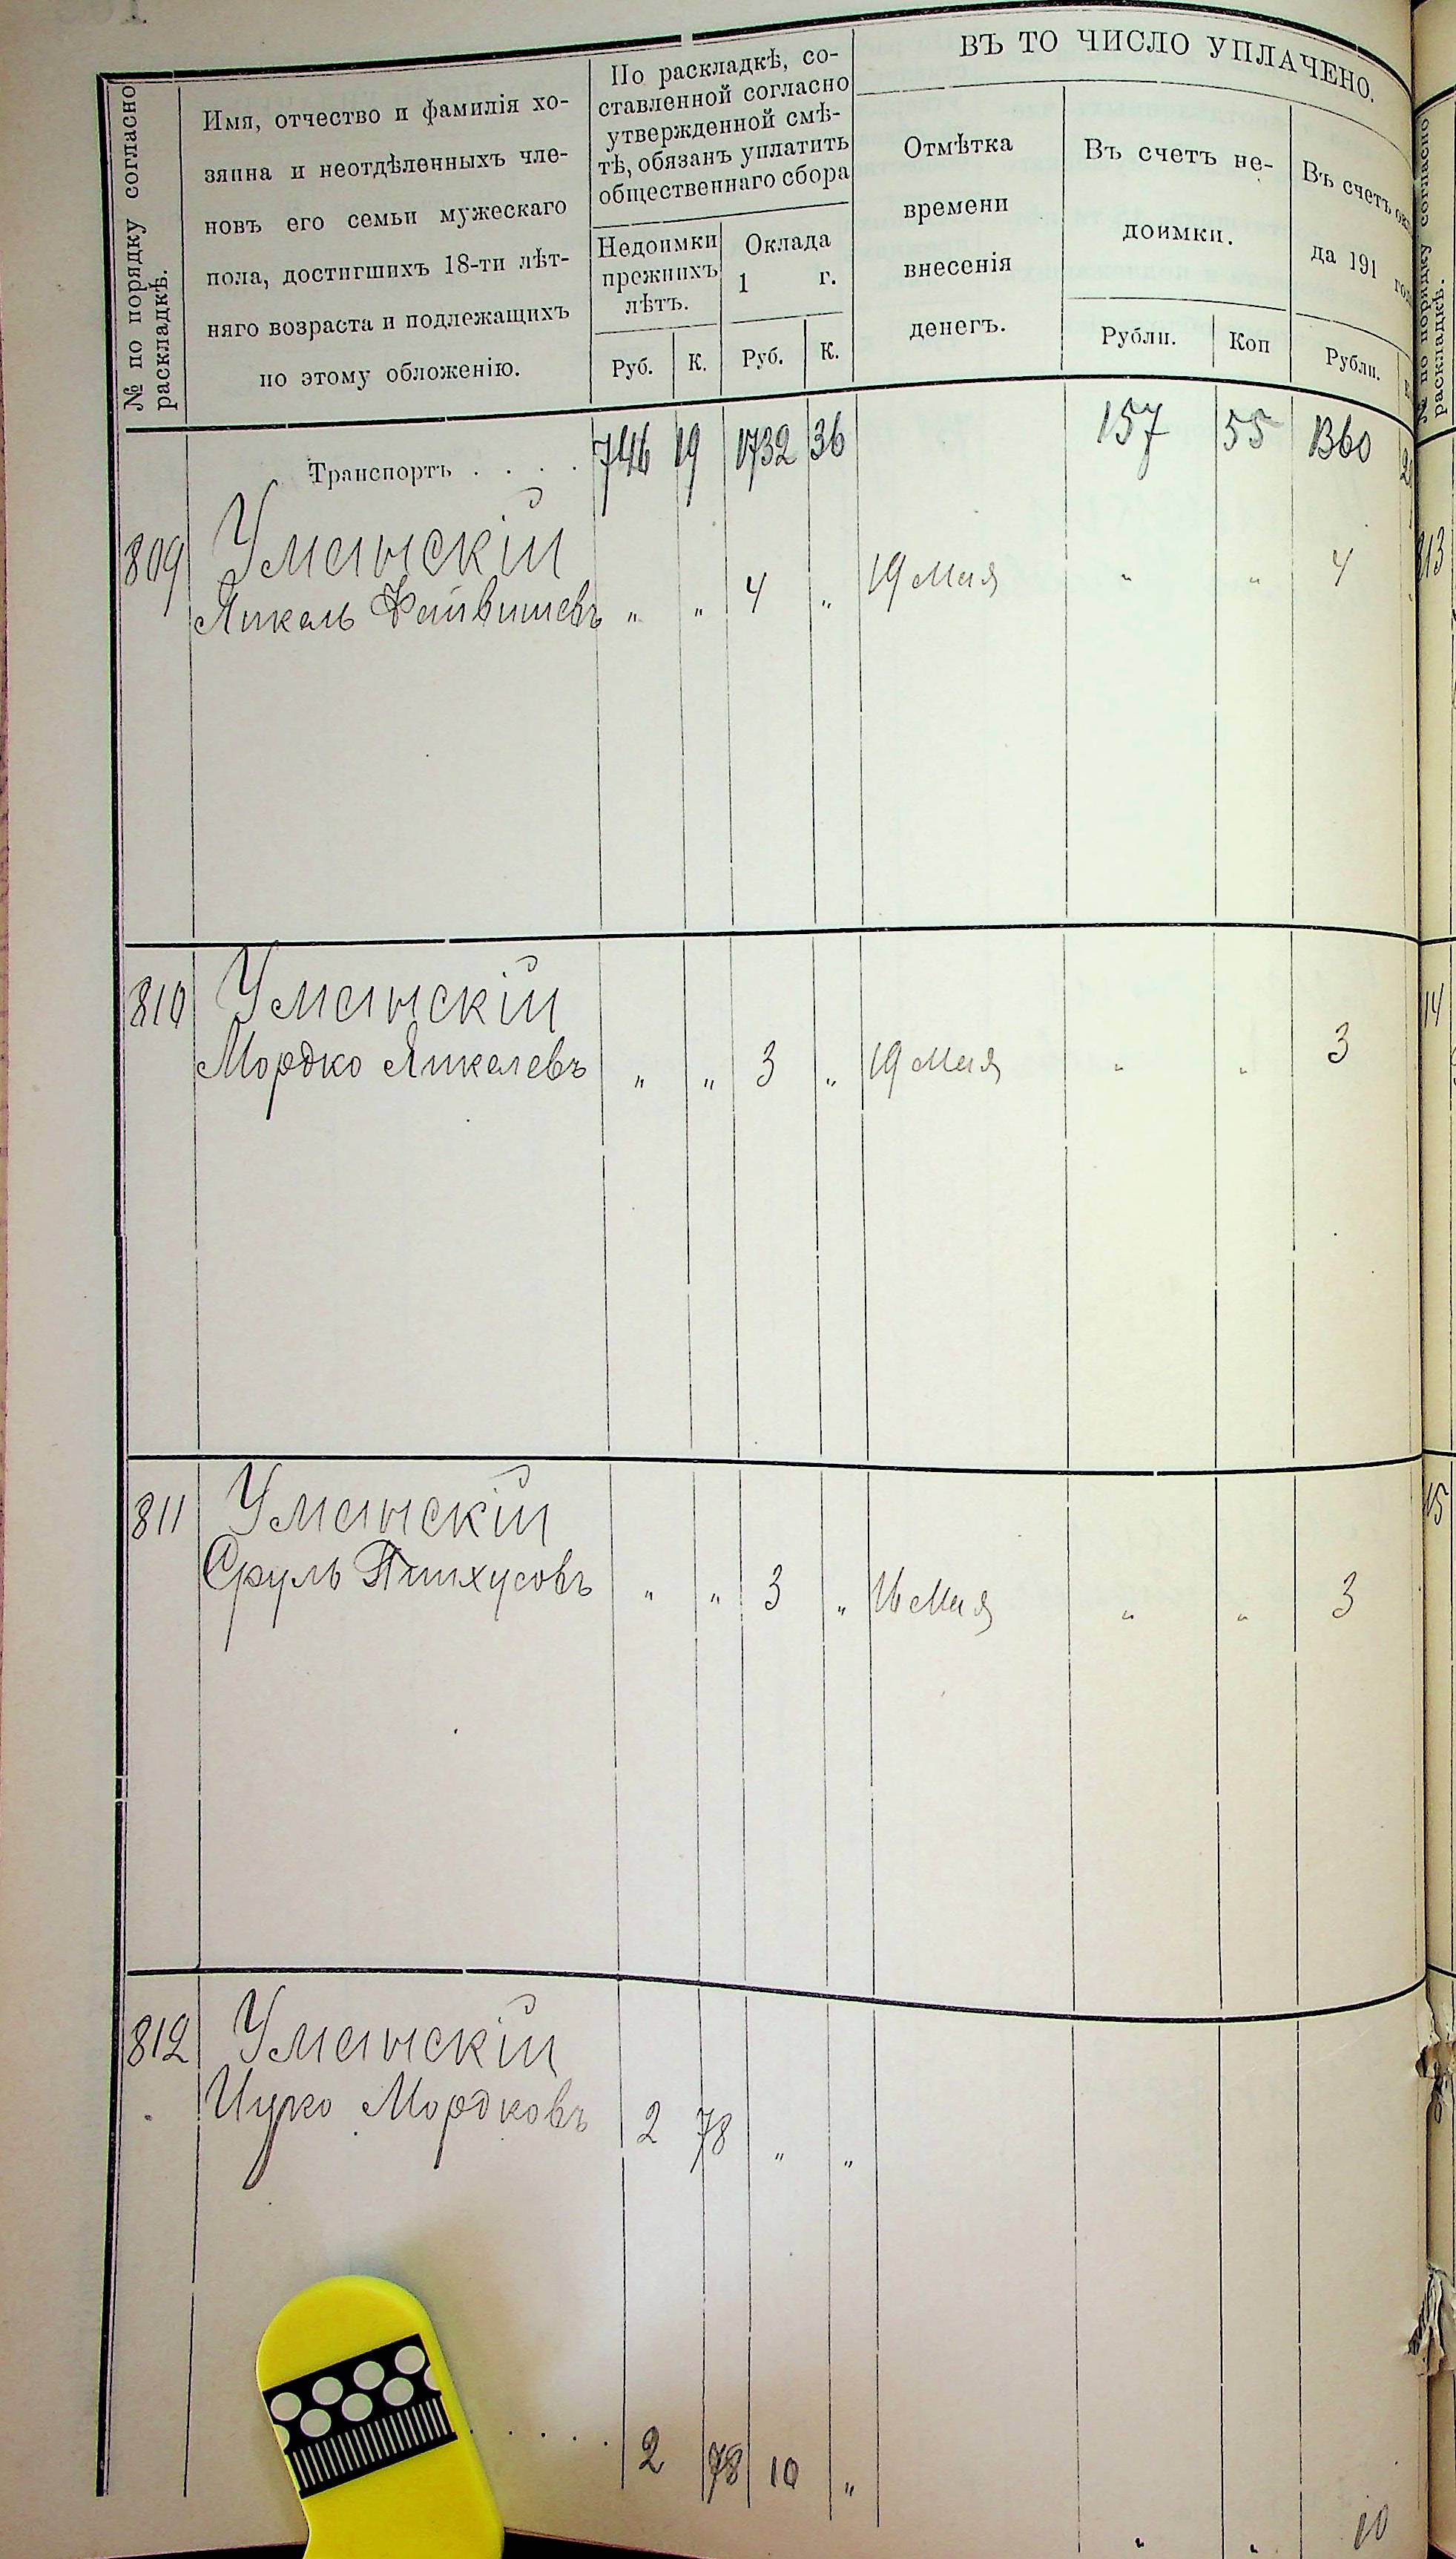 № по порядку согласно
раскладкѣ.
Имя, отчество и фамилія хо-
зяина и неотдѣленныхъ чле-
новъ его семьи мужескаго
пола, достигшихъ 18-ти лѣт-
няго возраста и подлежащихъ
по этому обложенію.
По раскладкѣ, со-
ставленной согласно
утвержденной смѣ-
тѣ, обязанъ уплатить
общественнаго сбора
Недоимки
прежнихъ
лѣтъ.
Оклада
1 г.
Руб. К. Руб. К.
ВЪ ТО ЧИСЛО УПЛАЧЕНО.
Отмѣтка
времени
внесенія
денегъ.
Въ счетъ не-
доимки.
Рубли. Коп
Въ счетъ
да 191
Рубли.
Транспортъ . . . . 746 19 1732 36 157 55 1360
809 Уманскій
Янкель Файвишевъ „ „ 4 „ 19 Мая „ „ 4
810 Уманскій
Мордко Янкелевъ „ „ 3 „ 19 Мая „ „ 3
811 Уманскій
Сруль Пинхусовъ „ „ 3 „ 16 Мая „ „ 3
812 Уманскій
Ицко Мордковъ 2 78 „ „
2 78 10 „
„ „ 10
№ по порядку согласно
раскладкѣ.
813
14
15